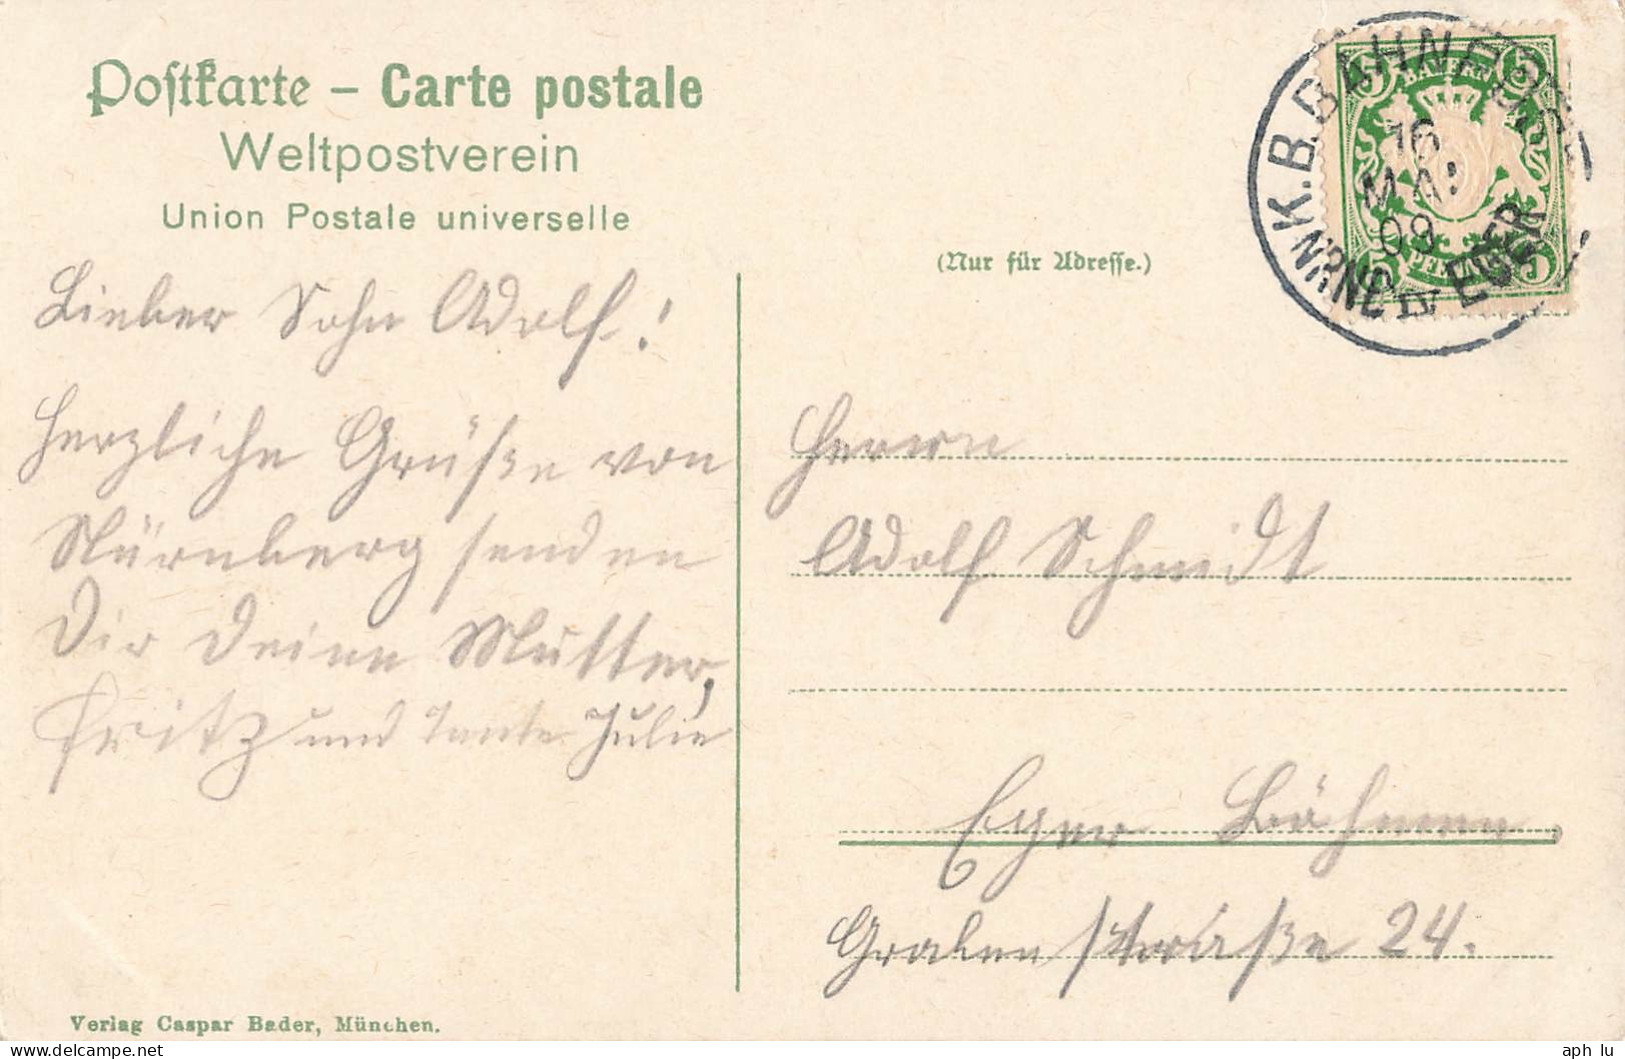 Postkarte – Carte postale
Weltpostverein
Union Postale universelle
Lieber Sohn Adolf!
Herzliche Grüße von
Nürnberg senden
Dir Deine Mutter,
Fritz und Tante Julie
Verlag Caspar Bader, München.
K.B.BAHNPOST
16
MAI
09
NÜRNBG EGER
IV
BAYERN
5 5
PFENNIG
5 5
(Nur für Adresse.)
Herrn
Adolf Schmidt
Eger Böhmen.
Grabenstraße 24.
aph lu